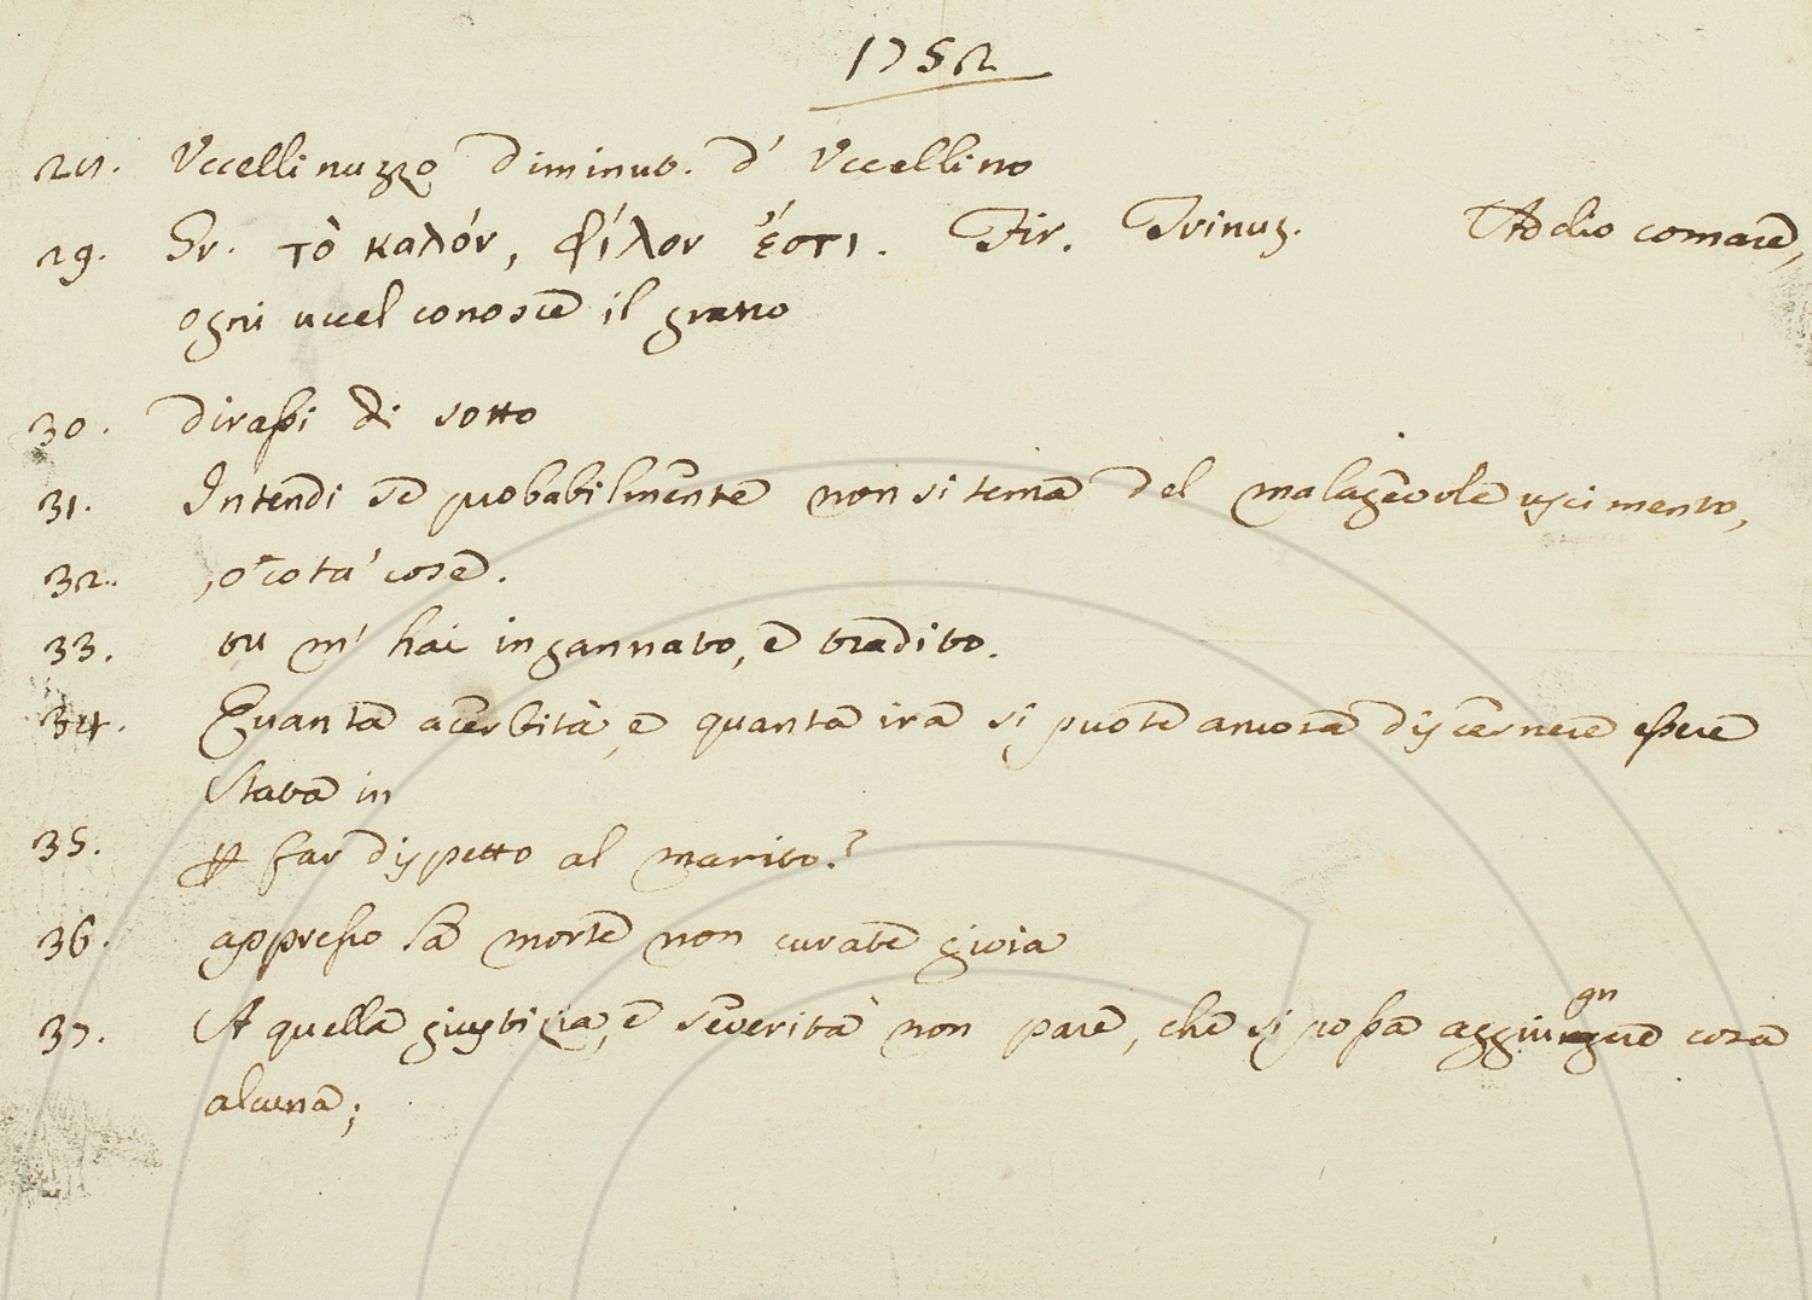 1752
28. Uccellinuzzo diminut. d' Uccellino
29. Gr. τὸ καλόν, φίλον ἐστι. Fir. Trinuz. Addio comare,
ogni uccel conosce il grano
30. dirassi di sotto
31. Intendi se probabilmente non si tema del malagevole uscimento,
32. , o cota' cose.
33. tu m' hai ingannato, e tradito.
34. Quanta acerbità, e quanta ira si puote ancora discernere essere
stata in
35. p far dispetto al marito.?
36. appresso la morte non curate gioia
37. A quella giustizia, e severità non pare, che si possa aggiugnere cosa
alcuna;